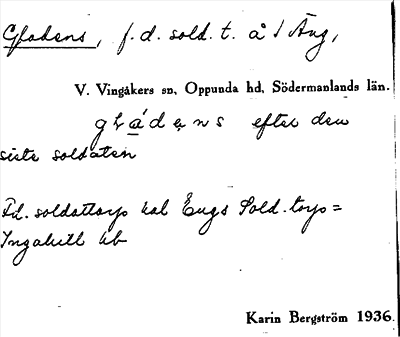 Gladens, f.d. sold. t. å Äng,
V. Vingåkers sn, Oppunda hd, Södermanlands län.
glådens efter den
siste soldaten
Fd. soldattorp kal Engs Sold. torp =
hb
Karin Bergström 1936.